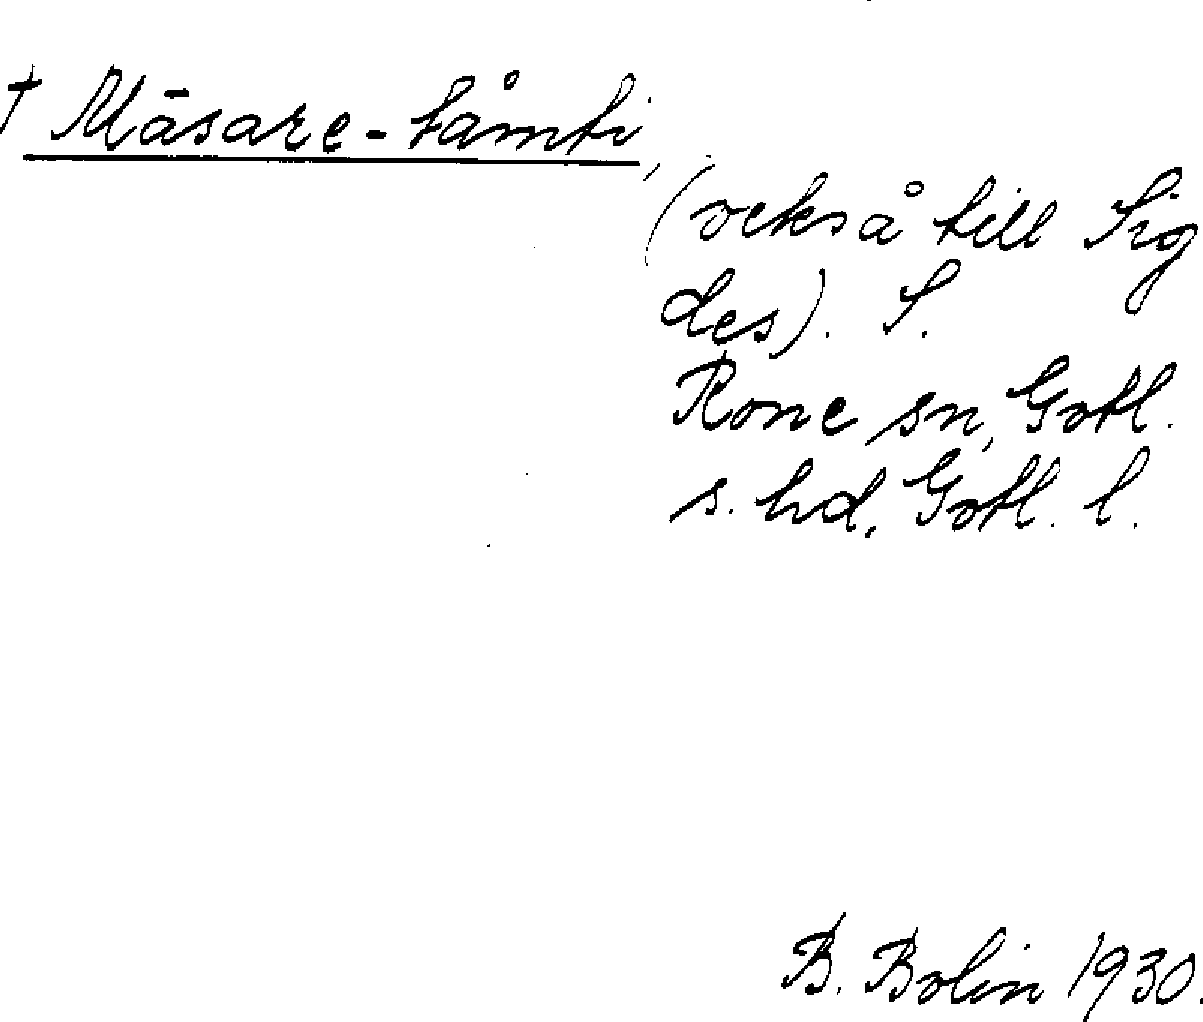 † Mäsare-tåmti,
(också till Sig
des). S.
Rone sn, Gotl.
s. hd, Gotl. l.
B. Bolin 1930.